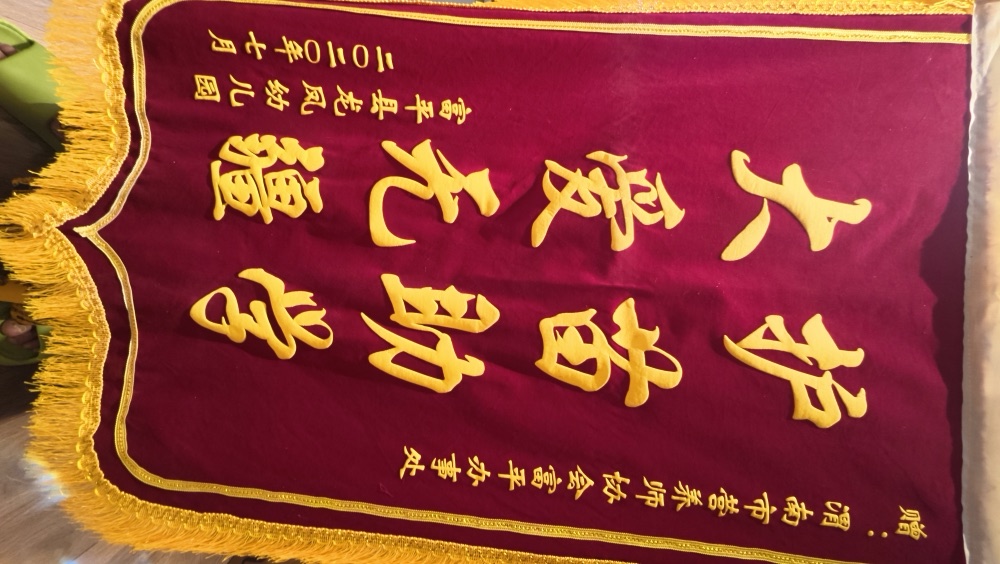 赠：渭南市营养师协会富平办事处
护苗助学
大爱无疆
富平县老凤幼儿园
二〇二〇年七月